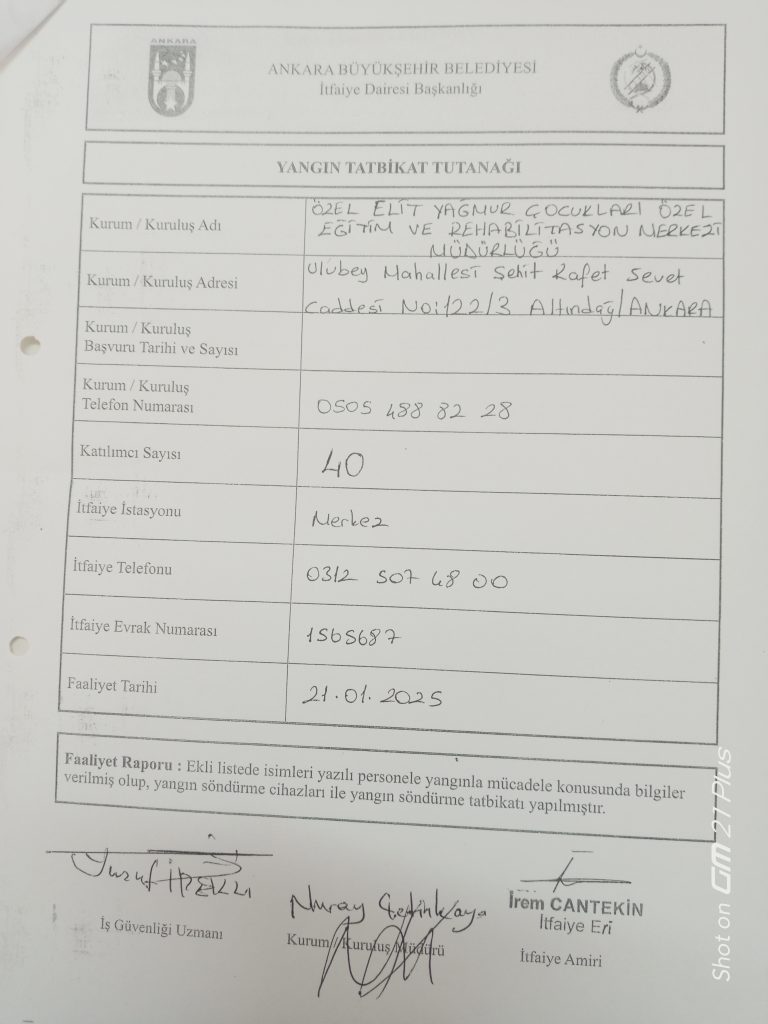 ANKARA
ANKARA BÜYÜKŞEHİR BELEDİYESİ
İtfaiye Dairesi Başkanlığı
YANGIN TATBİKAT TUTANAĞI
Kurum / Kuruluş Adı
ÖZEL ELİT YAĞMUR ÇOCUKLARI ÖZEL
EĞİTİM VE REHABİLİTASYON MERKEZİ
MÜDÜRLÜĞÜ
Kurum / Kuruluş Adresi
Ulubey Mahallesi Şehit Rafet Sevet
Caddesi No:122/3 Altındağ/ANKARA
Kurum / Kuruluş
Başvuru Tarihi ve Sayısı
Kurum / Kuruluş
Telefon Numarası
0505 488 82 28
Katılımcı Sayısı
40
İtfaiye İstasyonu
Merkez
İtfaiye Telefonu
0312 507 48 00
İtfaiye Evrak Numarası
1565687
Faaliyet Tarihi
21.01.2025
Faaliyet Raporu : Ekli listede isimleri yazılı personele yangınla mücadele konusunda bilgiler
verilmiş olup, yangın söndürme cihazları ile yangın söndürme tatbikatı yapılmıştır.
Yusuf İPEKLİ
İş Güvenliği Uzmanı
Nuray Çetinkaya
Kurum / Kuruluş Müdürü
İrem CANTEKİN
İtfaiye Eri
İtfaiye Amiri
Shot on GM 21 Plus